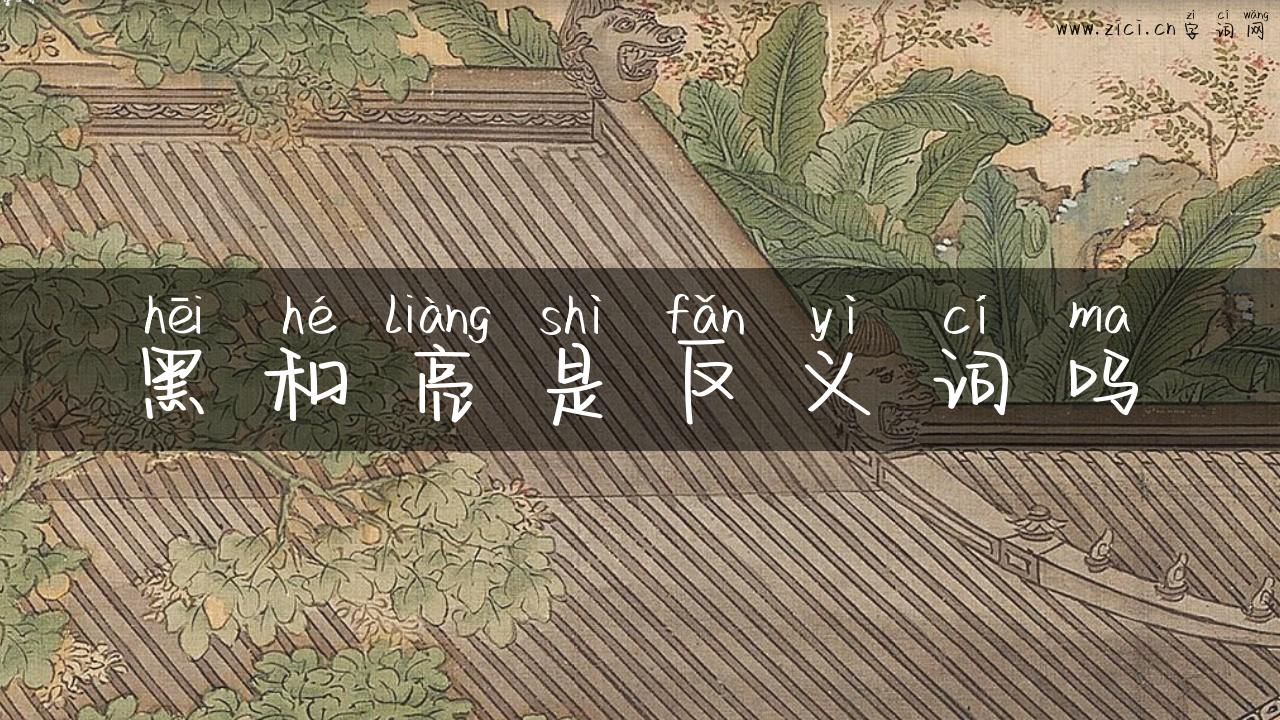 zì cí wǎng
www.zici.cn 字 词 网
hēi hé liàng shì fǎn yì cí ma
黑 和 亮 是 反 义 词 吗